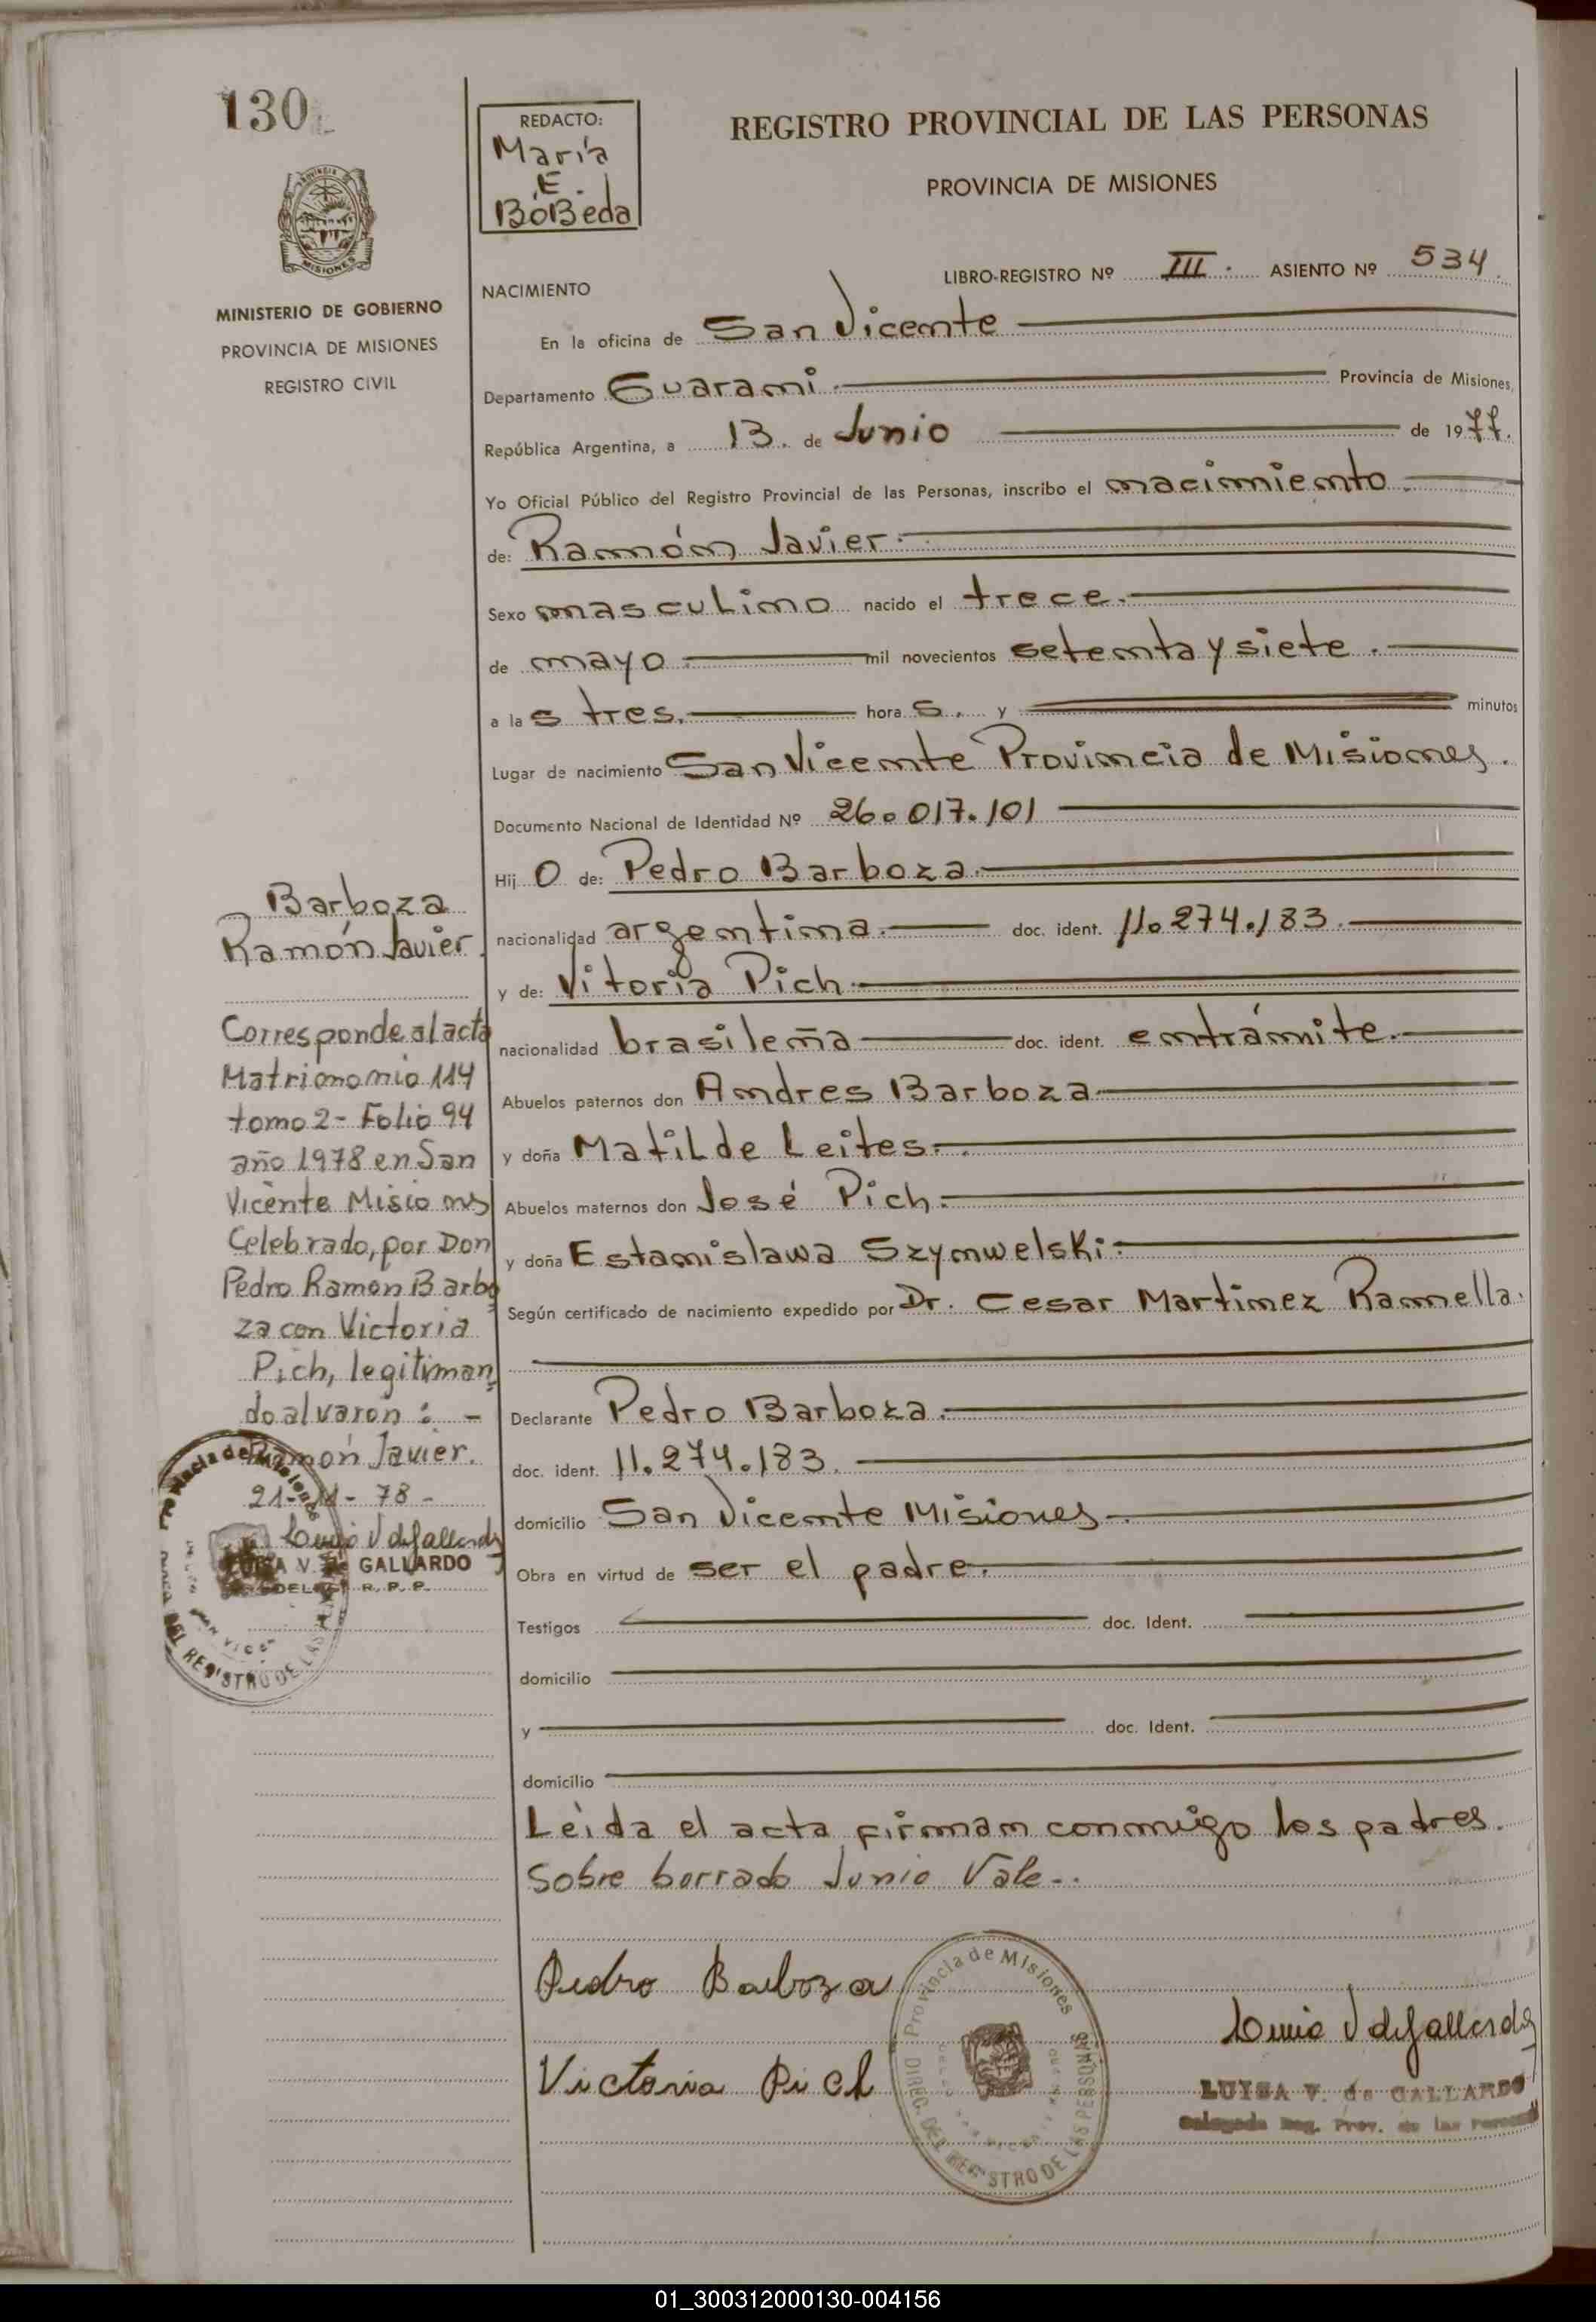 130
REDACTO:
María
E.
BoBeda
REGISTRO PROVINCIAL DE LAS PERSONAS
PROVINCIA DE MISIONES
MISIONES
MINISTERIO DE GOBIERNO
PROVINCIA DE MISIONES
REGISTRO CIVIL
LIBRO-REGISTRO Nº III. ASIENTO Nº 534
NACIMIENTO
En la oficina de San Vicente
Departamento Guarami. Provincia de Misiones,
República Argentina, a 13. de Junio de 1977.
Yo Oficial Público del Registro Provincial de las Personas, inscribo el nacimiento
de: Ramón Javier.
Sexo masculino nacido el trece.
de mayo mil novecientos setenta y siete.
a las tres. horas. y minutos
Lugar de nacimiento San Vicente Provincia de Misiones.
Documento Nacional de Identidad Nº 26.017.101
Hijo de: Pedro Barboza.
nacionalidad argentina. doc. ident. 11.274.183.
y de: Vitoria Pich.
nacionalidad brasileña doc. ident. entrámite.
Abuelos paternos don Andres Barboza
y doña Matilde Leites.
Abuelos maternos don José Pich.
y doña Estanislawa Szynwelski.
Según certificado de nacimiento expedido por Dr. Cesar Martinez Ramella.
Declarante Pedro Barboza.
doc. ident. 11.274.183.
domicilio San Vicente Misiones.
Obra en virtud de ser el padre.
Testigos doc. Ident.
domicilio
y doc. Ident.
domicilio
Leida el acta firman conmigo los padres.
Sobre borrado Junio Vale.
Barboza
Ramón Javier.
Corresponde al acta
Matrimonio 114
tomo 2 - Folio 94
año 1978 en San
Vicente Misiones
Celebrado, por Don
Pedro Ramon Barbo
za con Victoria
Pich, legitiman
do al varon: -
Ramón Javier.
21-11-78-
LUISA V. de GALLARDO
Pedro Barboza
Victoria Pich
Provincia de Misiones
DIREC. DEL REGISTRO DE LAS PERSONAS
LUISA V. de GALLARDO
Delegada Reg. Prov. de las Personas
01_300312000130-004156